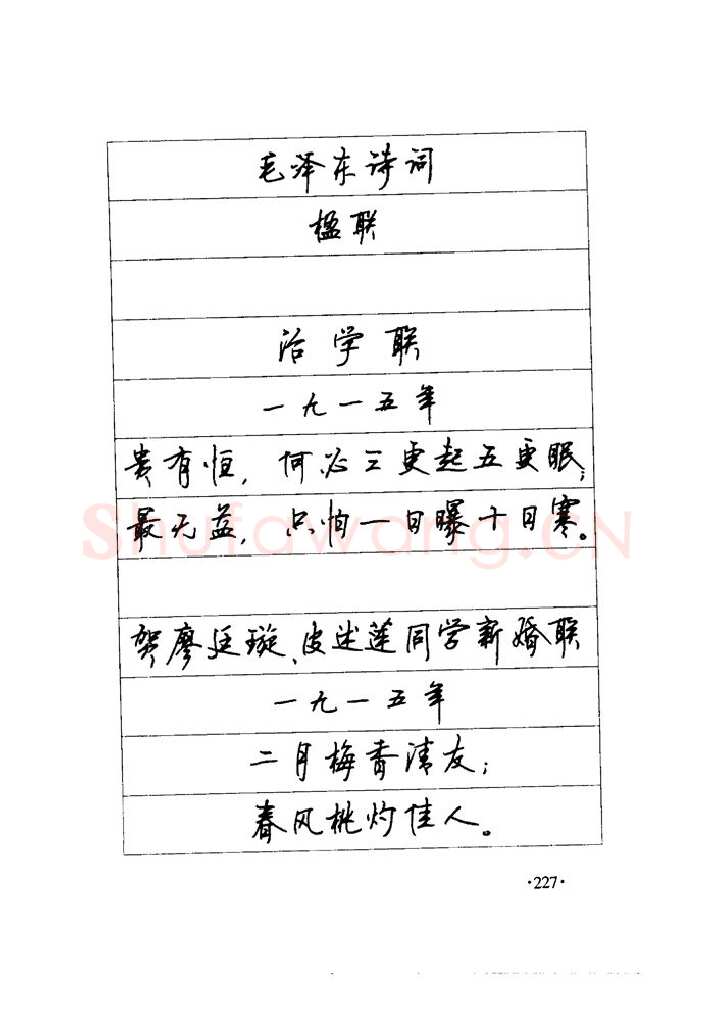 毛泽东诗词
楹联
治学联
一九一五年
贵有恒，何必三更起五更眠；
最无益，只怕一日曝十日寒。
贺廖廷璇、皮述莲同学新婚联
一九一五年
二月梅香清友；
春风桃灼佳人。
·227·
Shufawang.CN